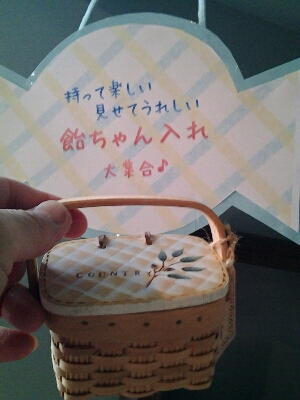 持って楽しい
見せてうれしい
飴ちゃん入れ
大集合♪
COUNTRY